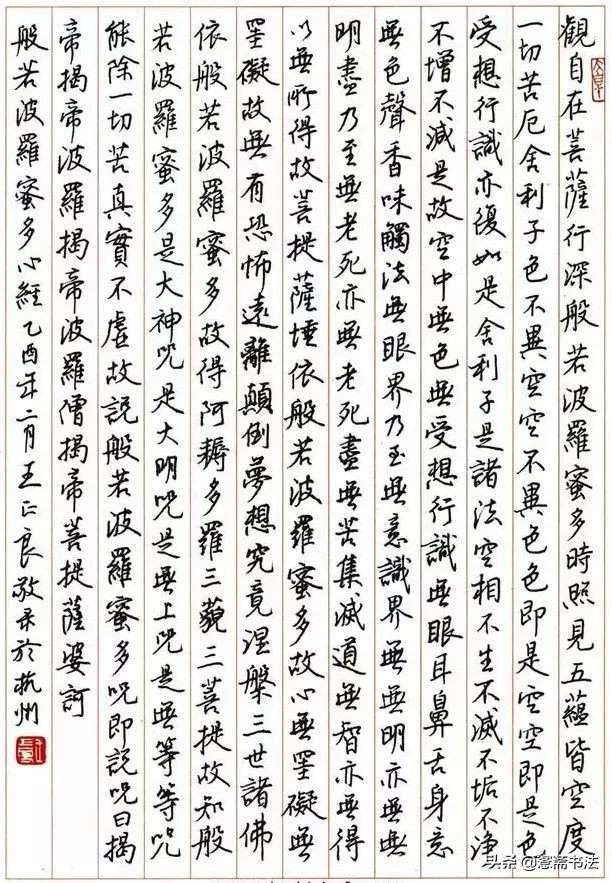 觀自在菩薩行深般若波羅蜜多時照見五蘊皆空度
一切苦厄舍利子色不異空空不異色色即是空空即是色
受想行識亦復如是舍利子是諸法空相不生不滅不垢不淨
不增不減是故空中無色無受想行識無眼耳鼻舌身意
無色聲香味觸法無眼界乃至無意識界無無明亦無無
明盡乃至無老死亦無老死盡無苦集滅道無智亦無得
以無所得故菩提薩埵依般若波羅蜜多故心無罣礙無
罣礙故無有恐怖遠離顛倒夢想究竟涅槃三世諸佛
依般若波羅蜜多故得阿耨多羅三藐三菩提故知般
若波羅蜜多是大神咒是大明咒是無上咒是無等等咒
能除一切苦真實不虛故說般若波羅蜜多咒即說咒曰揭
帝揭帝波羅揭帝波羅僧揭帝菩提薩婆訶
般若波羅蜜多心經乙酉年二月王正良敬录於杭州
头条 @斋书法